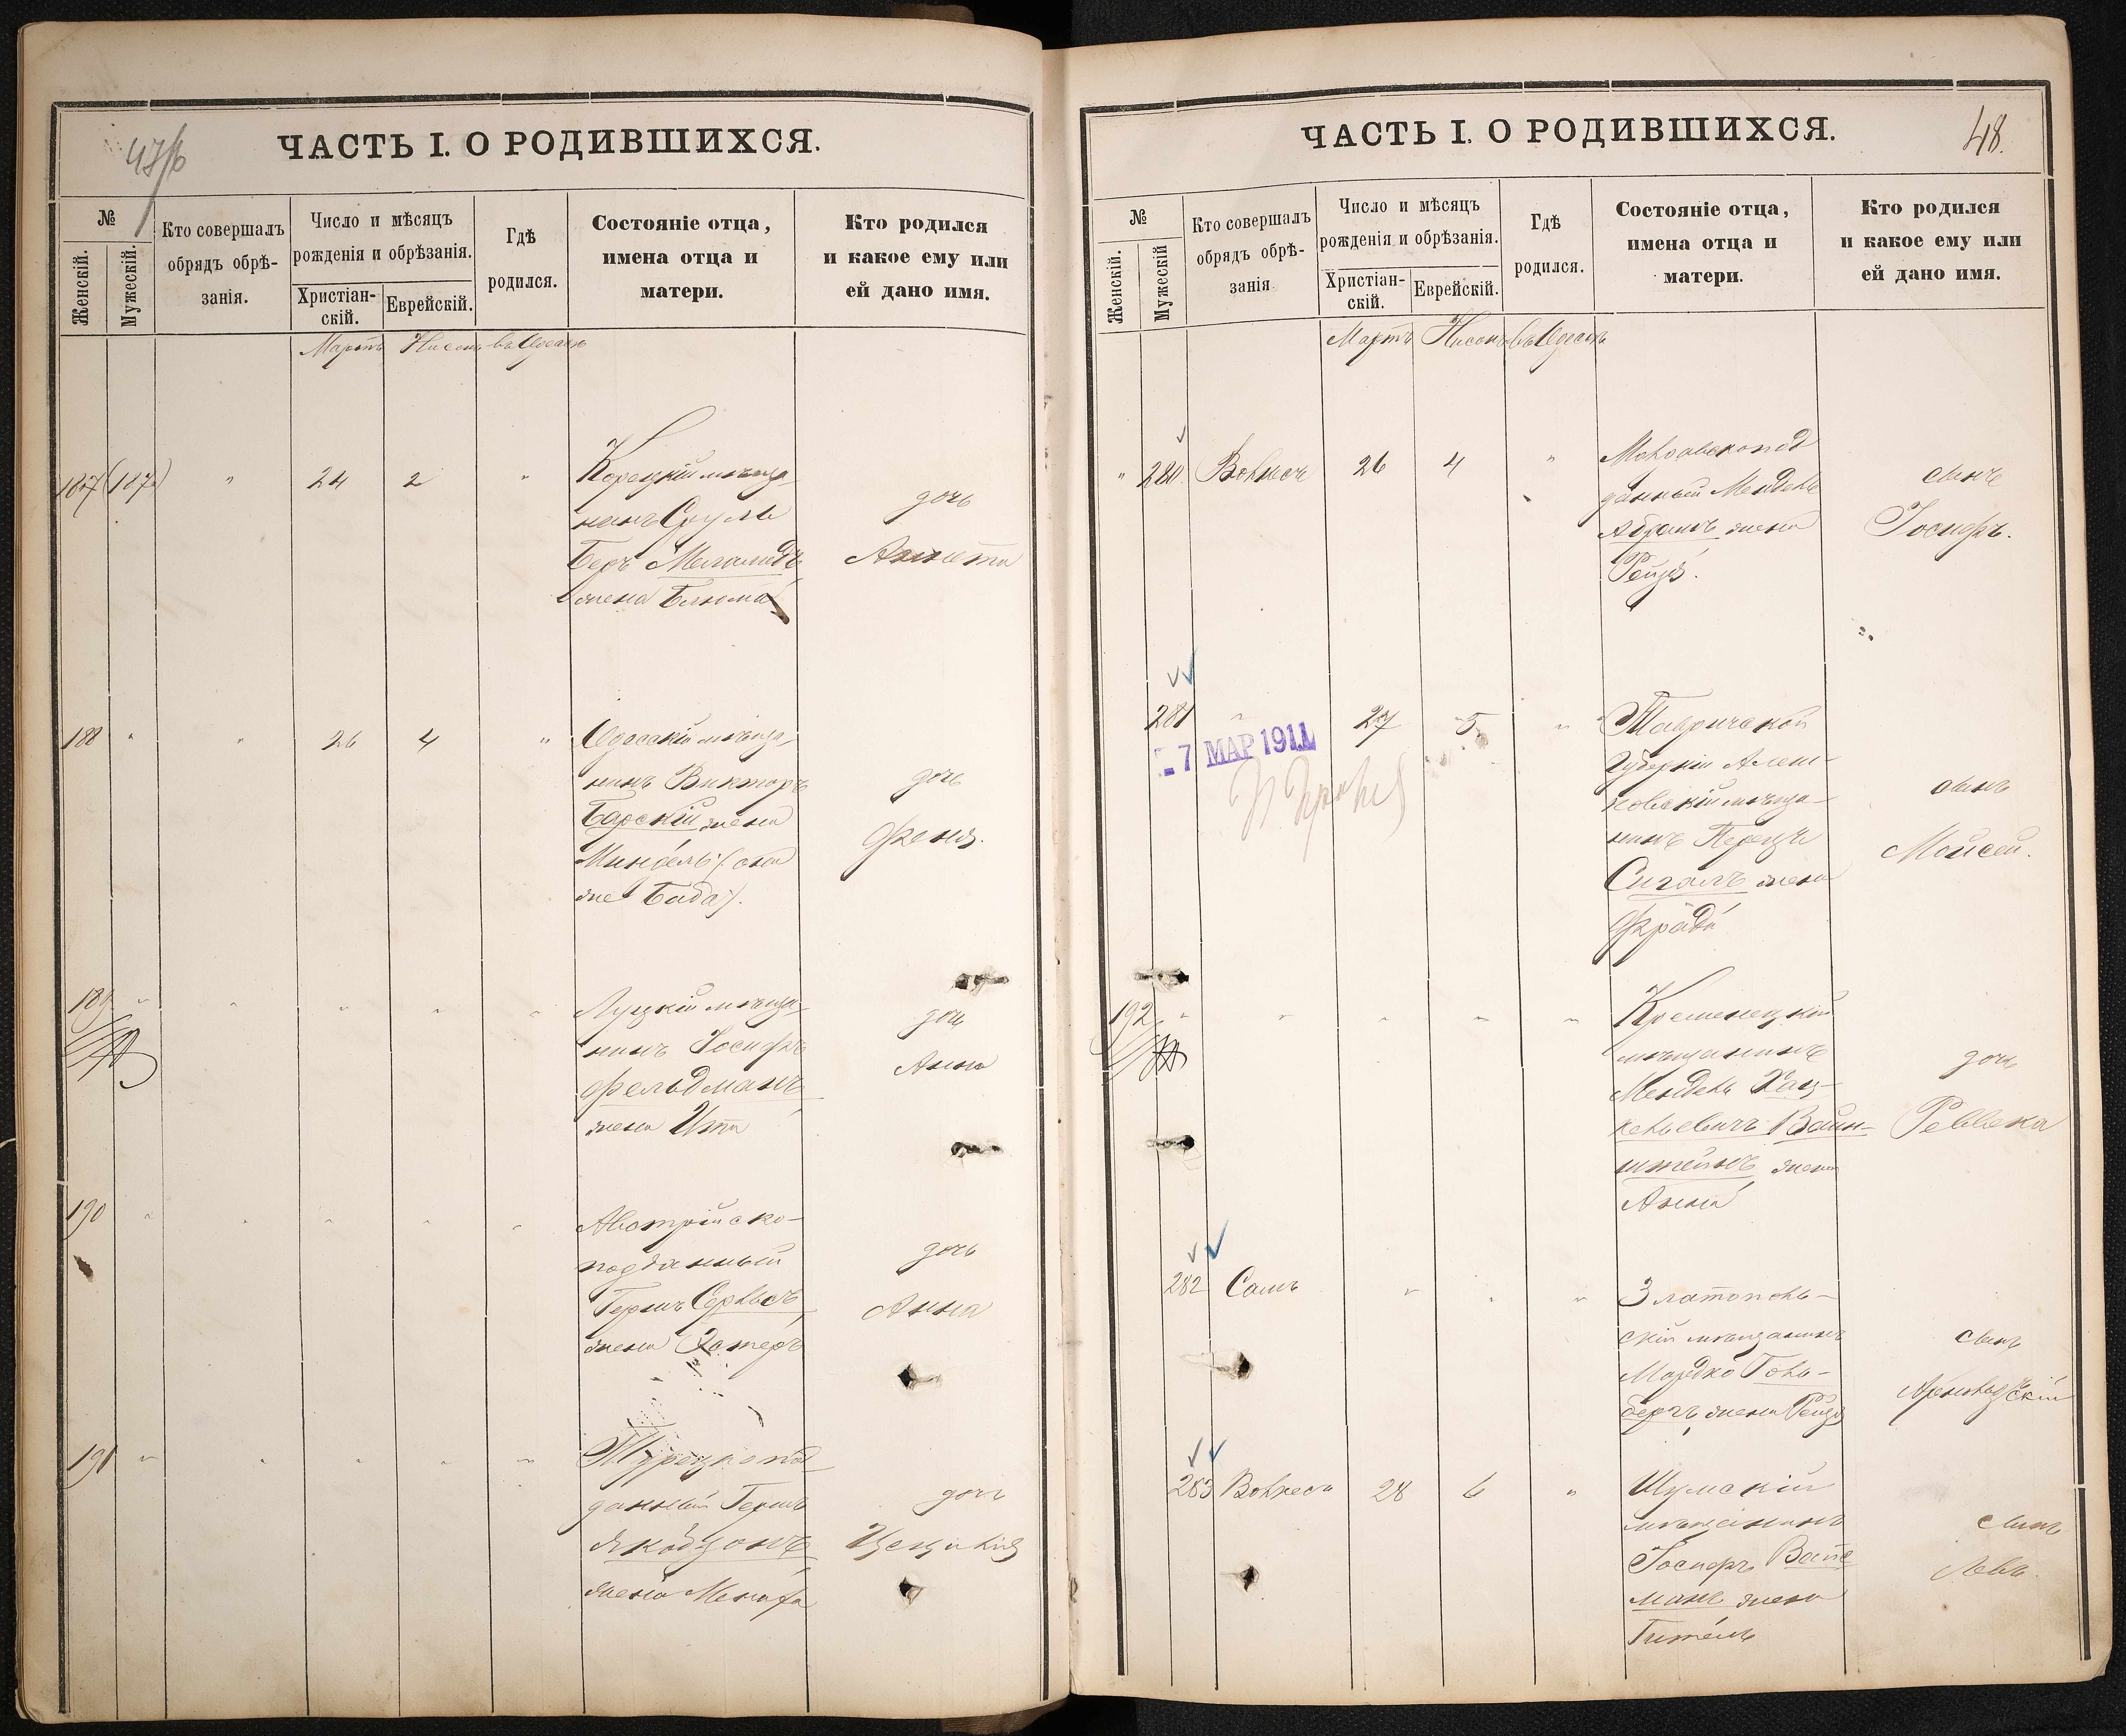 ЧАСТЬ I. О РОДИВШИХСЯ.
№
Женскій.
Мужескій.
Кто совершалъ
обрядъ обрѣ-
занія.
Число и мѣсяцъ
рожденія и обрѣзанія.
Христіан-
скій.
Еврейскій.
Гдѣ
родился.
Состояніе отца,
имена отца и
матери.
Кто родился
и какое ему или
ей дано имя.
Мартъ Нисонъ въ Одессѣ
187 (187) " 24 2 "
Корецкій мѣща-
нинъ Сруль
Беръ Меламедъ
жена Блюма
дочь
Аннета
188 " " 26 4 "
Одесскій мѣща-
нинъ Викторъ
Барскій жена
Миндель (она
же Баба).
дочь
Феня.
189 " " " " "
Луцкій мѣща-
нинъ Іосифъ
Фельдманъ
жена Ита
дочь
Анна
190 " " " " "
Австрійско-
подданный
Гершъ
жена Эстеръ
дочь
Анна
191 " " " " "
Турецкопод-
данный Гершъ
Якобзонъ
жена
дочь
Цецилія
ЧАСТЬ I. О РОДИВШИХСЯ.
48.
№
Женскій.
Мужескій
Кто совершалъ
обрядъ обрѣ-
занія
Число и мѣсяцъ
рожденія и обрѣзанія.
Христіан-
скій.
Еврейскій.
Гдѣ
родился.
Состояніе отца,
имена отца и
матери.
Кто родился
и какое ему или
ей дано имя.
Мартъ Нисонъ въ Одессѣ
" 280. 26 4 "
данный Мендель
Абрамъ жена
Рейзя.
сынъ
Іосифъ.
281 " 27 5 "
7 МАР 1911
Таврической
Губерніи Алеш-
ковскій мѣща-
нинъ Перецъ
Сигалъ жена
Фрада
сынъ
Мойсей.
192 " " " " "
Кременецкій
мѣщанинъ
Мендель Хац-
келевичъ Вайн-
штейнъ жена
Анна
дочь
Ревекка
282 Самъ " " "
Златополь-
скій мѣщанинъ
Мордко Голь-
бергъ жена Рейзя
сынъ
283 28 6 "
Шумскій
мѣщанинъ
Іосифъ Вайс
манъ жена
Гитель
сынъ
Левъ.